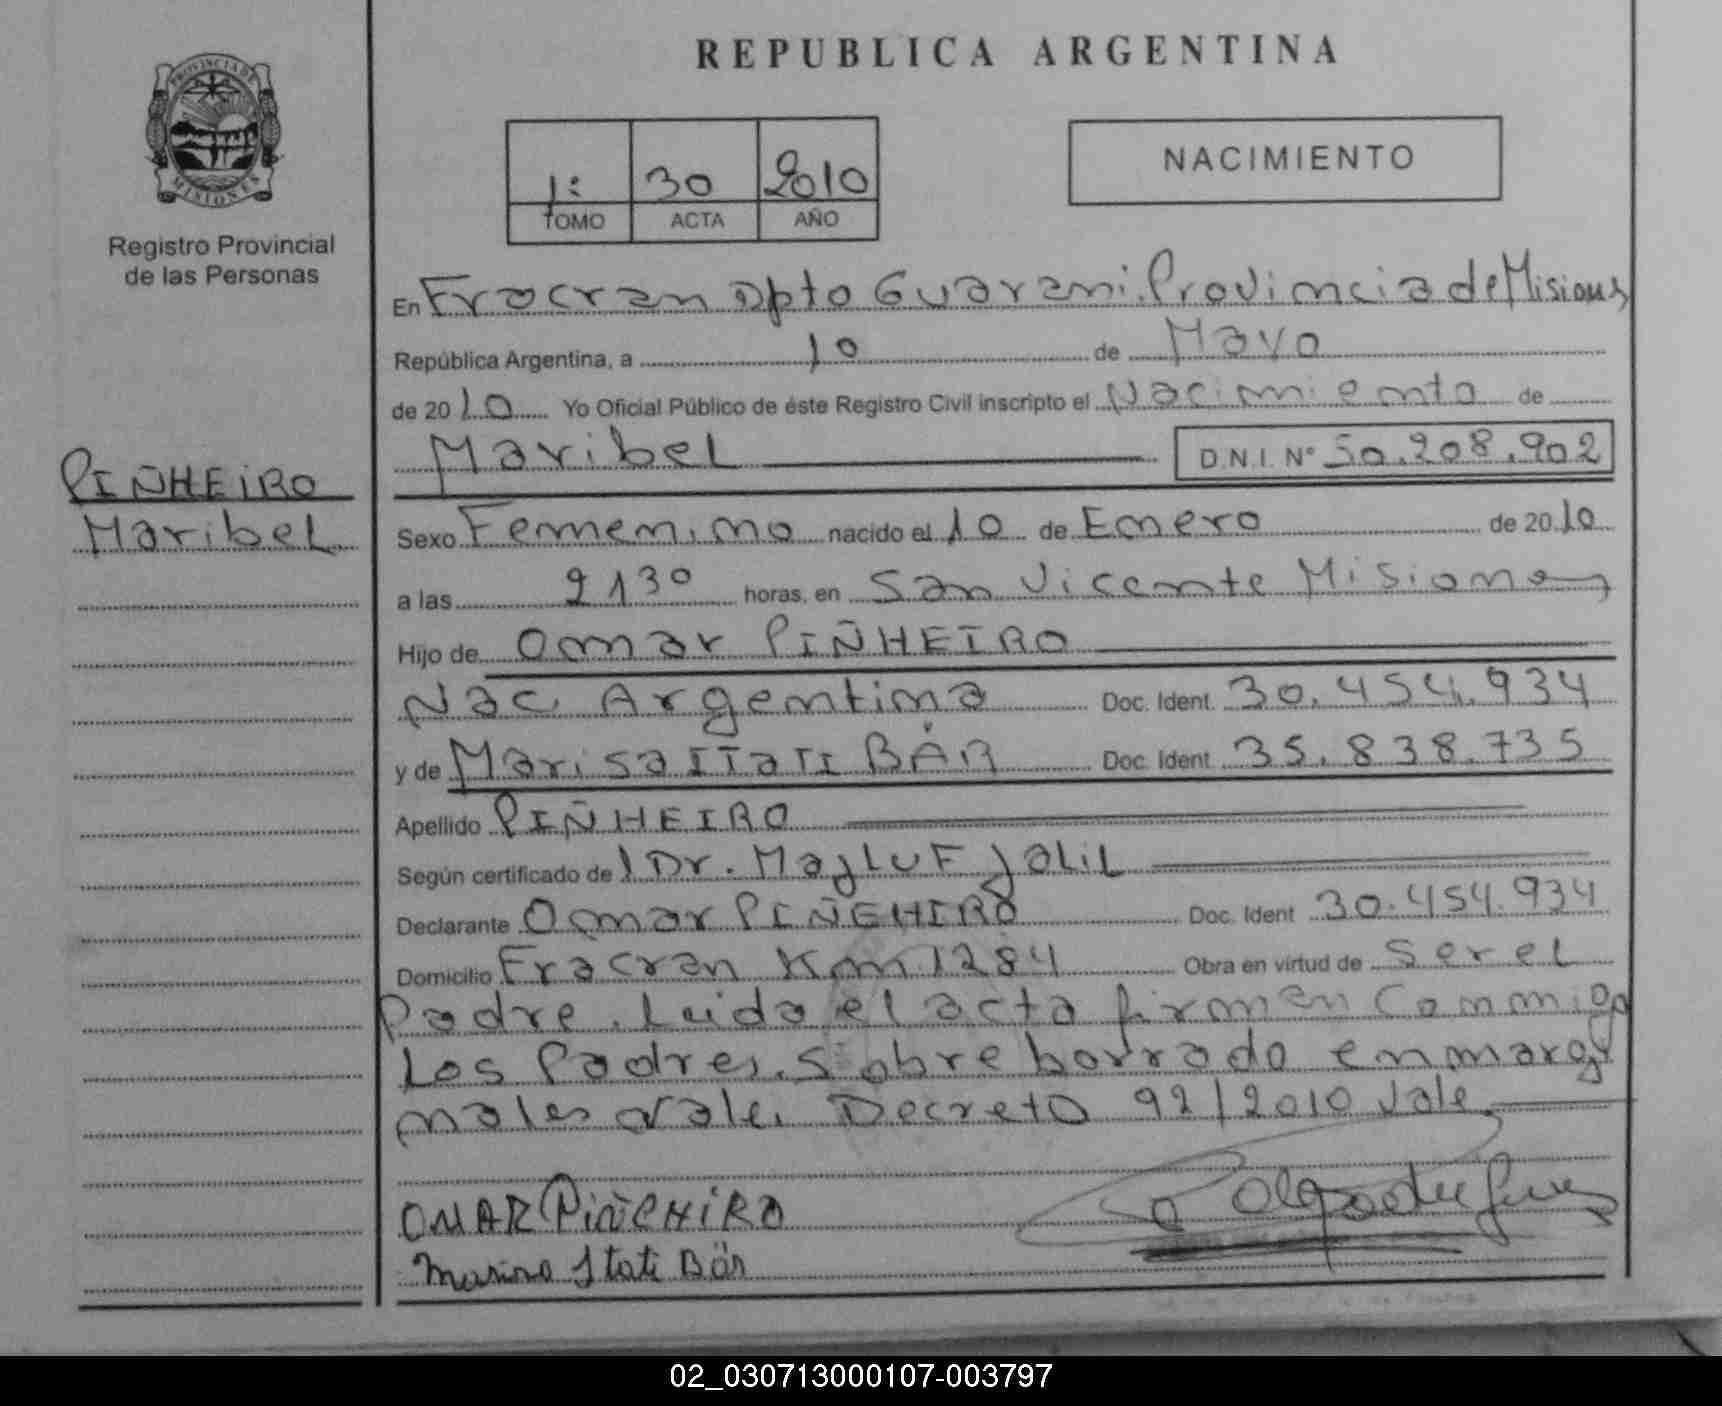 PROVINCIA DE
MISIONES
Registro Provincial
de las Personas
PIÑHEIRO
Maribel
REPUBLICA ARGENTINA
1: 30 2010
TOMO ACTA AÑO
NACIMIENTO
En Fracran Dpto Guarani. Provincia de Misiones
República Argentina, a 10 de Mayo
de 2010 Yo Oficial Público de éste Registro Civil inscripto el Nacimiento de
Maribel D.N.I. Nº 50.208.902
Sexo Femenino nacido el 10 de Enero de 2010
a las 2130 horas, en San Vicente Misiones
Hijo de Omar PIÑHEIRO
Nac Argentina Doc. Ident. 30.454.934
y de Marisa ITATI BÄR Doc. Ident. 35.838.735
Apellido PIÑHEIRO
Según certificado de 1 Dr. MajLUF JaLiL
Declarante Omar PIÑEHIRO Doc. Ident 30.454.934
Domicilio Fracran Km 1284 Obra en virtud de Ser el
Padre. Leida el acta firman Conmigo
Los Padres. Sobre borrado en margi
nales vale. Decreto 92/2010 vale.
OMAR PIÑEHIRO
Itati Bär
02_030713000107-003797